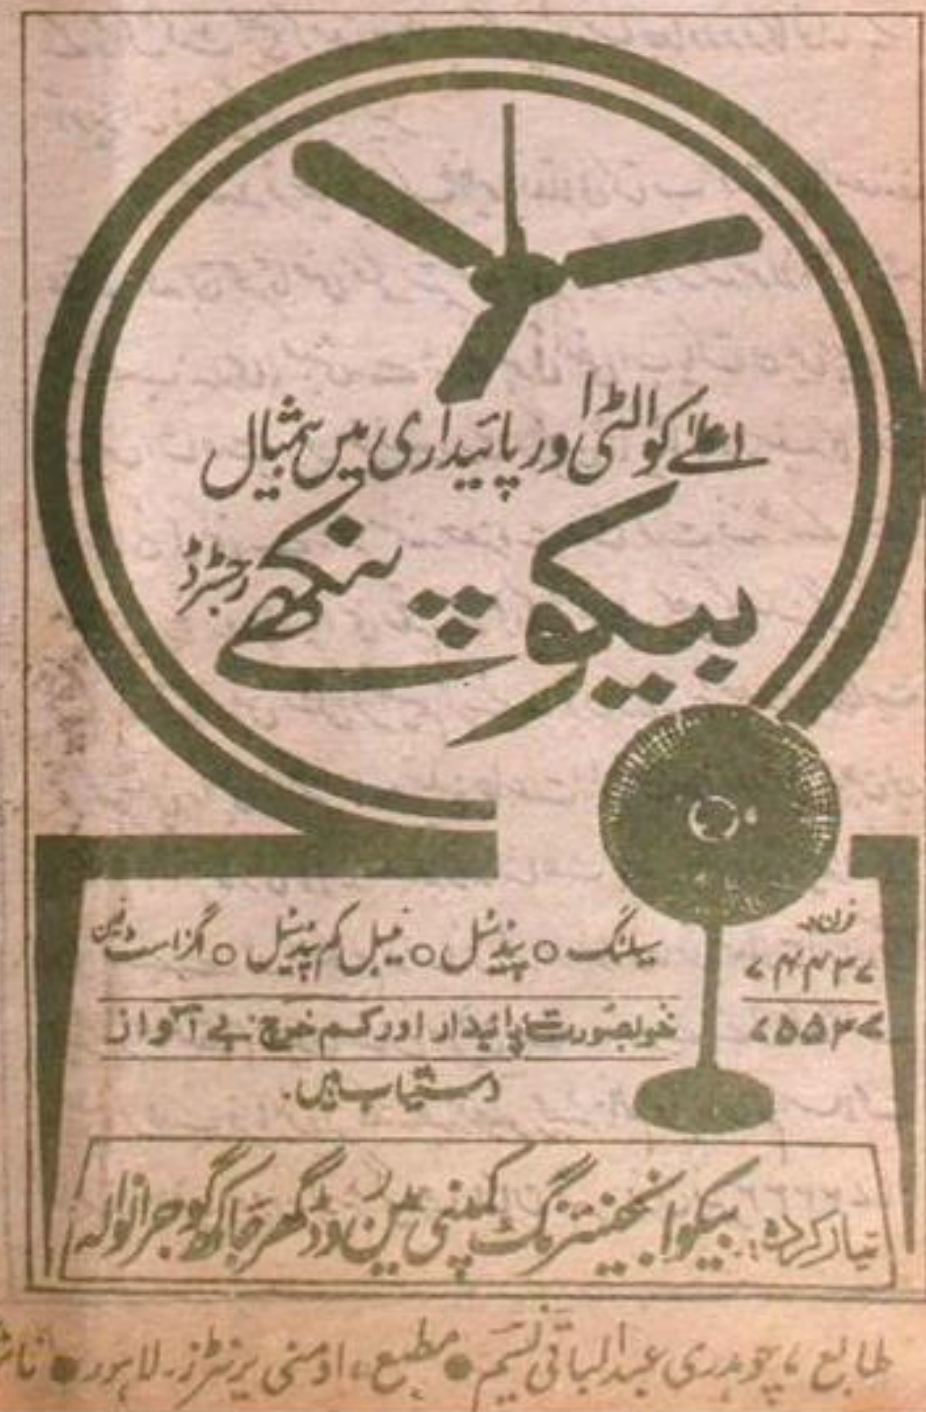 اعلےٰ کوالٹی اور پائیداری میں بے مثال
بیکو پنکھے رجسٹرڈ
سیلنگ ○ پیڈسٹل ○ ٹیبل کم پیڈسٹل ○ اگزاسٹ فین
خوبصورت پائیدار اور کم خرچ بے آواز
دستیاب ہیں۔
فون
۷۴۴۴۷
۷۵۵۴۷
تیار کردہ: بیکو انجینئرنگ کمپنی مین روڈ گھر جاکھ گوجرانوالہ
طابع، چوہدری عبدالباقی نسیم ● مطبع، اومنی پرنٹرز۔ لاہور ●